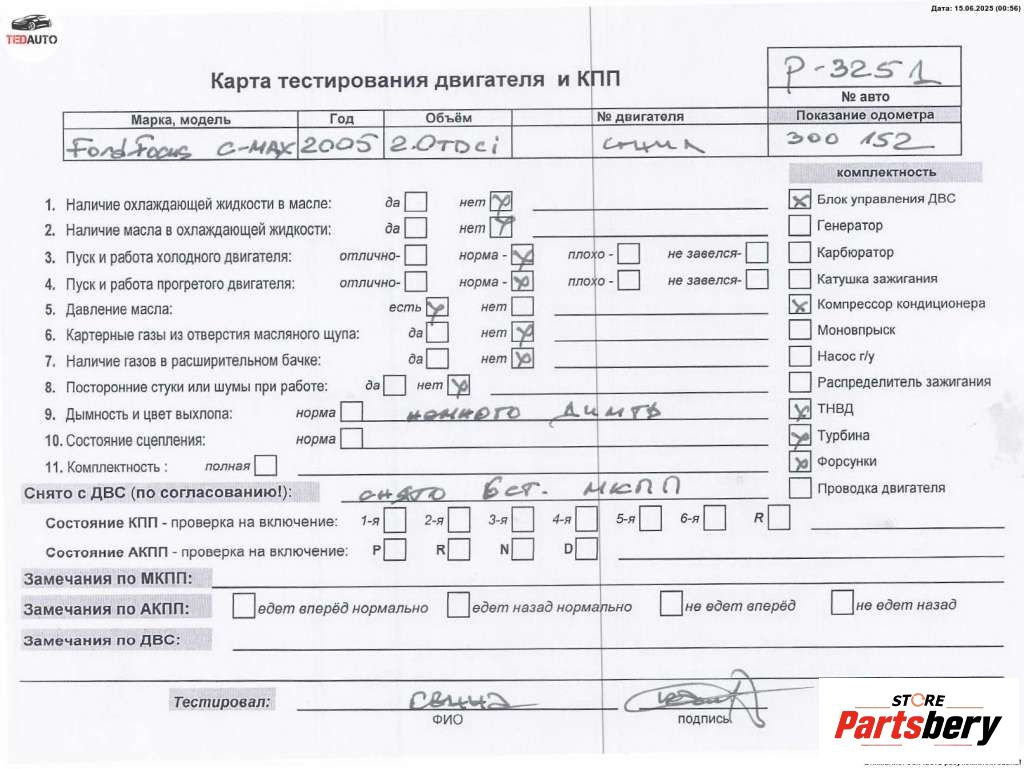 Дата: 15.06.2025 (00:56)
TEDAUTO
Карта тестирования двигателя и КПП
P-3251
№ авто
Марка, модель Год Объём № двигателя Показание одометра
Ford Focus C-MAX 2005 2.0TDCi 300 152
комплектность
1. Наличие охлаждающей жидкости в масле: да нет Блок управления ДВС
2. Наличие масла в охлаждающей жидкости: да нет Генератор
3. Пуск и работа холодного двигателя: отлично- норма - плохо - не завелся- Карбюратор
4. Пуск и работа прогретого двигателя: отлично- норма - плохо - не завелся- Катушка зажигания
5. Давление масла: есть нет Компрессор кондиционера
6. Картерные газы из отверстия масляного щупа: да нет Моновпрыск
7. Наличие газов в расширительном бачке: да нет Насос г/у
8. Посторонние стуки или шумы при работе: да нет Распределитель зажигания
9. Дымность и цвет выхлопа: норма немного димть ТНВД
10. Состояние сцепления: норма Турбина
11. Комплектность : полная Форсунки
Снято с ДВС (по согласованию!): снято бст. МКПП Проводка двигателя
Состояние КПП - проверка на включение: 1-я 2-я 3-я 4-я 5-я 6-я R
Состояние АКПП - проверка на включение: P R N D
Замечания по МКПП:
Замечания по АКПП: едет вперёд нормально едет назад нормально не едет вперёд не едет назад
Замечания по ДВС:
Тестировал:
ФИО подпись
STORE
Partsbery